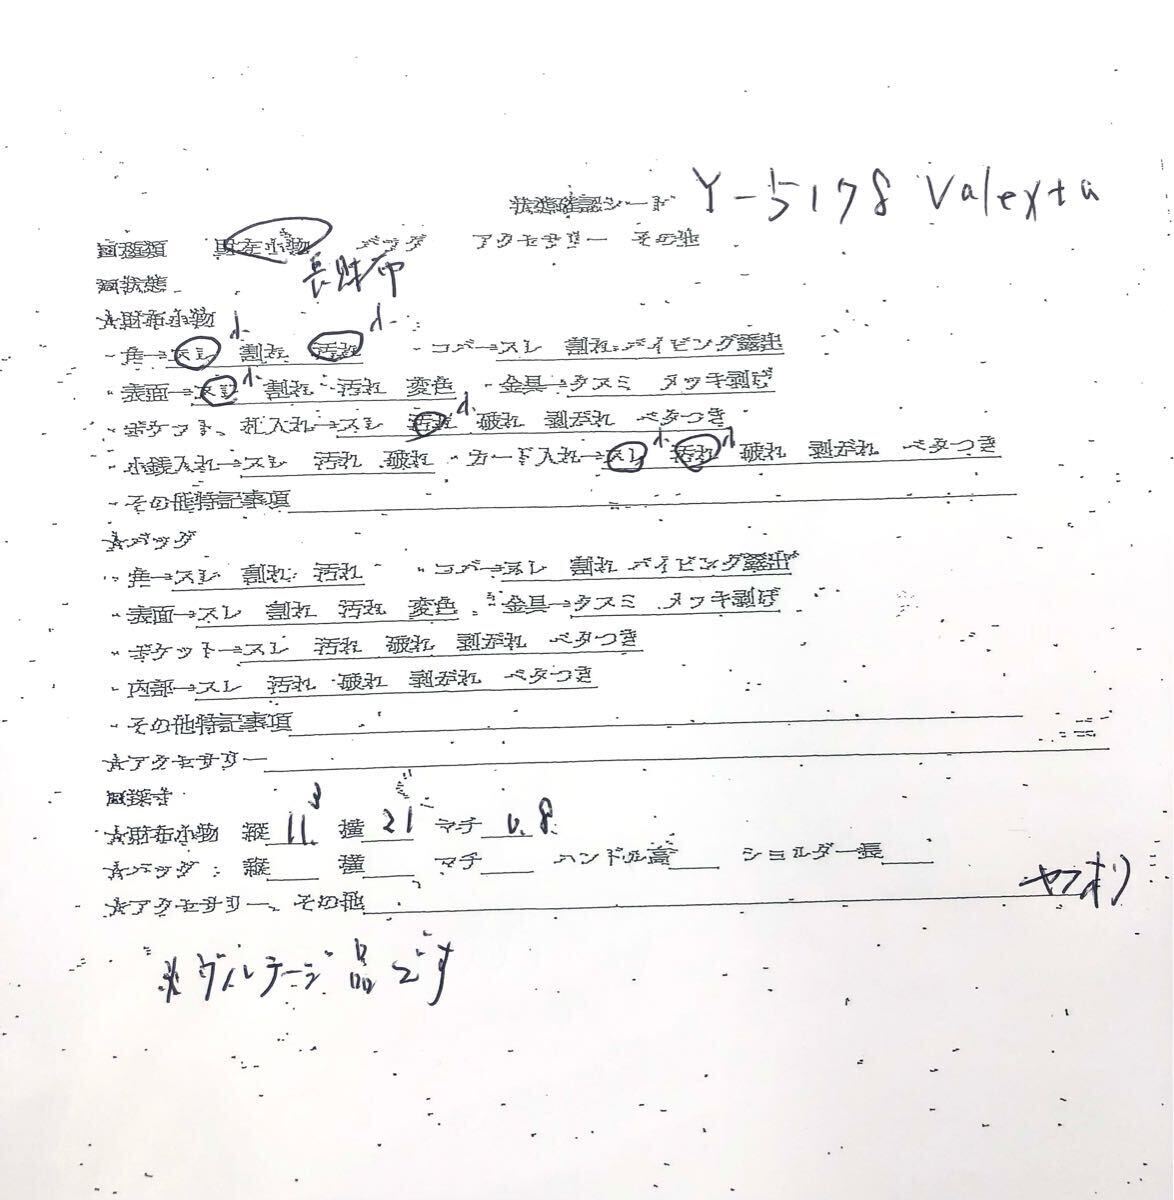 状態確認シート Y-5178 Valexta
回種類 財布小物 バッグ アクセサリー その他
長財布
回状態
★財布小物
・角→スレ 小 割れ 汚れ 小 ・コバ→スレ 割れ パイピング露出
・表面→スレ 小 割れ 汚れ 変色 ・金具→クスミ メッキ剥げ
・ポケット、札入れ→スレ 汚れ 小 破れ 剥がれ ベタつき
・小銭入れ→スレ 汚れ 破れ ・カード入れ→スレ 小 汚れ 小 破れ 剥がれ ベタつき
・その他特記事項
★バッグ
・角→スレ 割れ 汚れ ・コバ→スレ 割れ パイピング露出
・表面→スレ 割れ 汚れ 変色 ・金具→クスミ メッキ剥げ
・ポケット→スレ 汚れ 破れ 剥がれ ベタつき
・内部→スレ 汚れ 破れ 剥がれ ベタつき
・その他特記事項
★アクセサリー
回採寸
★財布小物 縦 11.3 横 21 マチ 0.8
★バッグ: 縦 横 マチ ハンドル高 ショルダー長
★アクセサリー、その他
ヤフオク
※ヴィンテージ品です